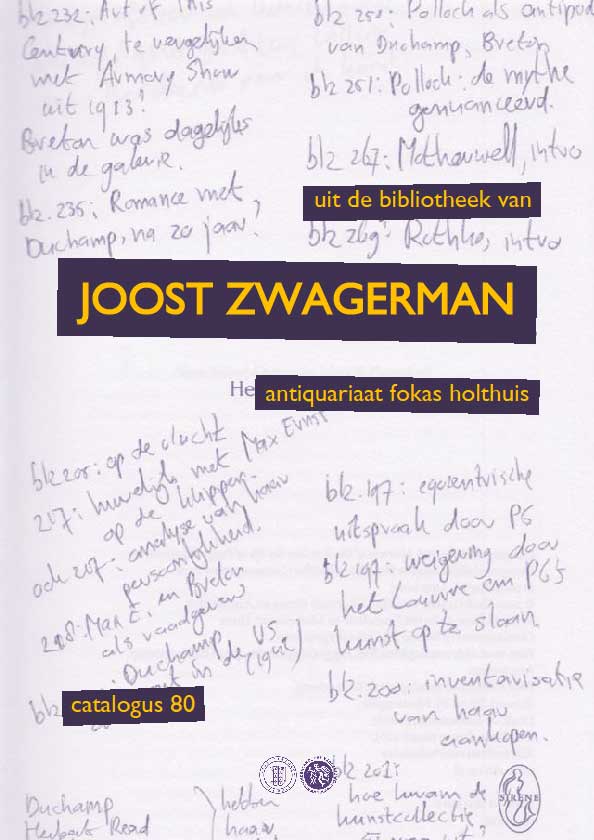 blz 232: Art of This
Century, te vergelijken
met Armory Show
uit 1913!
Breton was dagelijks
in de galerie.
blz. 235: Romance met
Duchamp, na 20 jaar!
blz 250: Pollock als antipod
van Duchamp, Breton
blz 251: Pollock: de mythe
genuanceerd.
blz 267: Motherwell, intro
uit de bibliotheek van
blz 269: Rothko, intro
JOOST ZWAGERMAN
He
antiquariaat fokas holthuis
blz 205: op de vlucht
217: huwelijk met Max Ernst
op de klippen.
ook 207: analyse van haar
persoonlijkheid.
208: Max E. en Breton
als raadgevers
: Duchamp
in de US
blz
catalogus 80
blz. 197: egocentrische
uitspraak door PG
blz 197: weigering door
het Louvre om PG's
kunst op te slaan.
blz. 200: inventarisatie
van haar
aankopen.
blz 201:
hoe kwam de
kunstcollectie
Duchamp
Herbert Read
hebben
haar
SIRENE